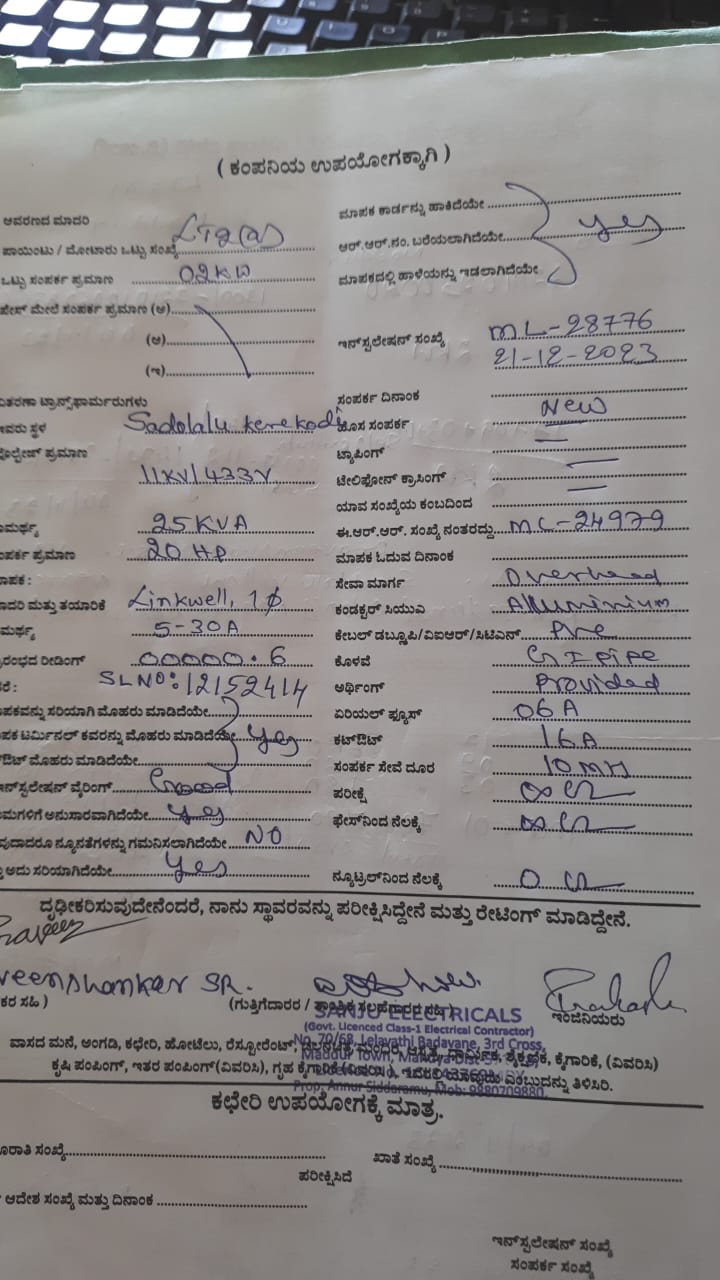 ( ಕಂಪನಿಯ ಉಪಯೋಗಕ್ಕಾಗಿ )
ಆವರಣದ ಮಾದರಿ
ಪಾಯಿಂಟು / ಮೋಟಾರು ಒಟ್ಟು ಸಂಖ್ಯೆ LT2(a)
ಒಟ್ಟು ಸಂಪರ್ಕ ಪ್ರಮಾಣ 02KW
ಪೇಸ್ ಮೇಲೆ ಸಂಪರ್ಕ ಪ್ರಮಾಣ (ಅ)
(ಆ)
(ಇ)
ವಿತರಣಾ ಟ್ರಾನ್ಸ್‌ಫಾರ್ಮರುಗಳು
ಸ್ಥಳ Sadolalu kerekodi
ವೋಲ್ಟೇಜ್ ಪ್ರಮಾಣ
11KV/433V
ಸಾಮರ್ಥ್ಯ 25KVA
ಸಂಪರ್ಕ ಪ್ರಮಾಣ 20 HP
ಮಾಪಕ :
ಮಾದರಿ ಮತ್ತು ತಯಾರಿಕೆ Linkwell, 1φ
ಸಾಮರ್ಥ್ಯ 5-30A
ಪ್ರಾರಂಭದ ರೀಡಿಂಗ್ 00000.6
SLNO:12152414
ಮಾಪಕವನ್ನು ಸರಿಯಾಗಿ ಮೊಹರು ಮಾಡಿದೆಯೇ
ಮಾಪಕ ಟರ್ಮಿನಲ್ ಕವರನ್ನು ಮೊಹರು ಮಾಡಿದೆಯೇ Yes
ಮೊಹರು ಮಾಡಿದೆಯೇ
ಇನ್‌ಸ್ಟಲೇಷನ್ ವೈರಿಂಗ್ Good
ನಿಯಮಗಳಿಗೆ ಅನುಸಾರವಾಗಿದೆಯೇ Yes
ಯಾವುದಾದರೂ ನ್ಯೂನತೆಗಳನ್ನು ಗಮನಿಸಲಾಗಿದೆಯೇ NO
ಅದು ಸರಿಯಾಗಿದೆಯೇ Yes
ಮಾಪಕ ಕಾರ್ಡನ್ನು ಹಾಕಿದೆಯೇ
ಆರ್.ಆರ್.ನಂ. ಬರೆಯಲಾಗಿದೆಯೇ Yes
ಮಾಪಕದಲ್ಲಿ ಹಾಳೆಯನ್ನು ಇಡಲಾಗಿದೆಯೇ
ಇನ್‌ಸ್ಟಲೇಷನ್ ಸಂಖ್ಯೆ ML-28776
21-12-2023
ಸಂಪರ್ಕ ದಿನಾಂಕ
ಹೊಸ ಸಂಪರ್ಕ New
ಟ್ಯಾಪಿಂಗ್ —
ಟೆಲಿಫೋನ್ ಕ್ರಾಸಿಂಗ್ —
ಯಾವ ಸಂಖ್ಯೆಯ ಕಂಬದಿಂದ —
ಈ.ಆರ್.ಆರ್. ಸಂಖ್ಯೆ ನಂತರದ್ದು ML-24979
ಮಾಪಕ ಓದುವ ದಿನಾಂಕ
ಸೇವಾ ಮಾರ್ಗ Overhead
ಕಂಡಕ್ಟರ್ ಸಿಯುಎ Alluminium
ಕೇಬಲ್ ಡಬ್ಲೂಪಿ/ವಿಐಆರ್/ಸಿಟಿಎನ್ PVC
ಕೊಳವೆ GI Pipe
ಅರ್ಥಿಂಗ್ Provided
ಏರಿಯಲ್ ಫ್ಯೂಸ್ 06A
ಕಟ್‌ಔಟ್ 16A
ಸಂಪರ್ಕ ಸೇವೆ ದೂರ 10 MH
ಪರೀಕ್ಷೆ ∞ Ω
ಫೇಸ್‌ನಿಂದ ನೆಲಕ್ಕೆ ∞ Ω
ನ್ಯೂಟ್ರಲ್‌ನಿಂದ ನೆಲಕ್ಕೆ 0 Ω
ದೃಢೀಕರಿಸುವುದೇನೆಂದರೆ, ನಾನು ಸ್ಥಾವರವನ್ನು ಪರೀಕ್ಷಿಸಿದ್ದೇನೆ ಮತ್ತು ರೇಟಿಂಗ್ ಮಾಡಿದ್ದೇನೆ.
veenshanker SR.
ಸಹಿ )
(ಗುತ್ತಿಗೆದಾರರ / ತಾಂತ್ರಿಕ ಸಲಹೆಗಾರರ ಸಹಿ)
ಇಂಜಿನಿಯರು
SANJU ELECTRICALS
(Govt. Licenced Class-1 Electrical Contractor)
No. 70/68, Lelavathi Badavane, 3rd Cross,
Maddur Town, Mandya Dist
Prop. Annur Siddaramu, Mob: 9880709880
ವಾಸದ ಮನೆ, ಅಂಗಡಿ, ಕಛೇರಿ, ಹೋಟೆಲು, ರೆಸ್ಟೋರೆಂಟ್, ಆಸ್ಪತ್ರೆ, ಧಾರ್ಮಿಕ, ಶೈಕ್ಷಣಿಕ, ಕೈಗಾರಿಕೆ, (ವಿವರಿಸಿ)
ಕೃಷಿ ಪಂಪಿಂಗ್, ಇತರ ಪಂಪಿಂಗ್(ವಿವರಿಸಿ), ಗೃಹ ಕೈಗಾರಿಕೆ (ವಿವರಿಸಿ), ಇದರಲ್ಲಿ ಯಾವುದು ಎಂಬುದನ್ನು ತಿಳಿಸಿರಿ.
ಕಛೇರಿ ಉಪಯೋಗಕ್ಕೆ ಮಾತ್ರ.
ಸಂಖ್ಯೆ
ಖಾತೆ ಸಂಖ್ಯೆ
ಪರೀಕ್ಷಿಸಿದೆ
ಆದೇಶ ಸಂಖ್ಯೆ ಮತ್ತು ದಿನಾಂಕ
ಇನ್‌ಸ್ಟಲೇಷನ್ ಸಂಖ್ಯೆ
ಸಂಪರ್ಕ ಸಂಖ್ಯೆ